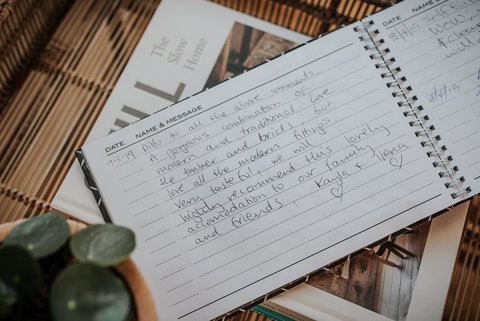 The
Slow
Home
DATE NAME & MESSAGE
Dito to all the above comments.
A gorgeous combination of
modern and traditional. Love
the timber and bricks, but
love all the modern fittings
very tasteful, we will
highly recommend this lovely
accomodation to our family
and friends. Kayla &
DATE NAME & MESSAGE